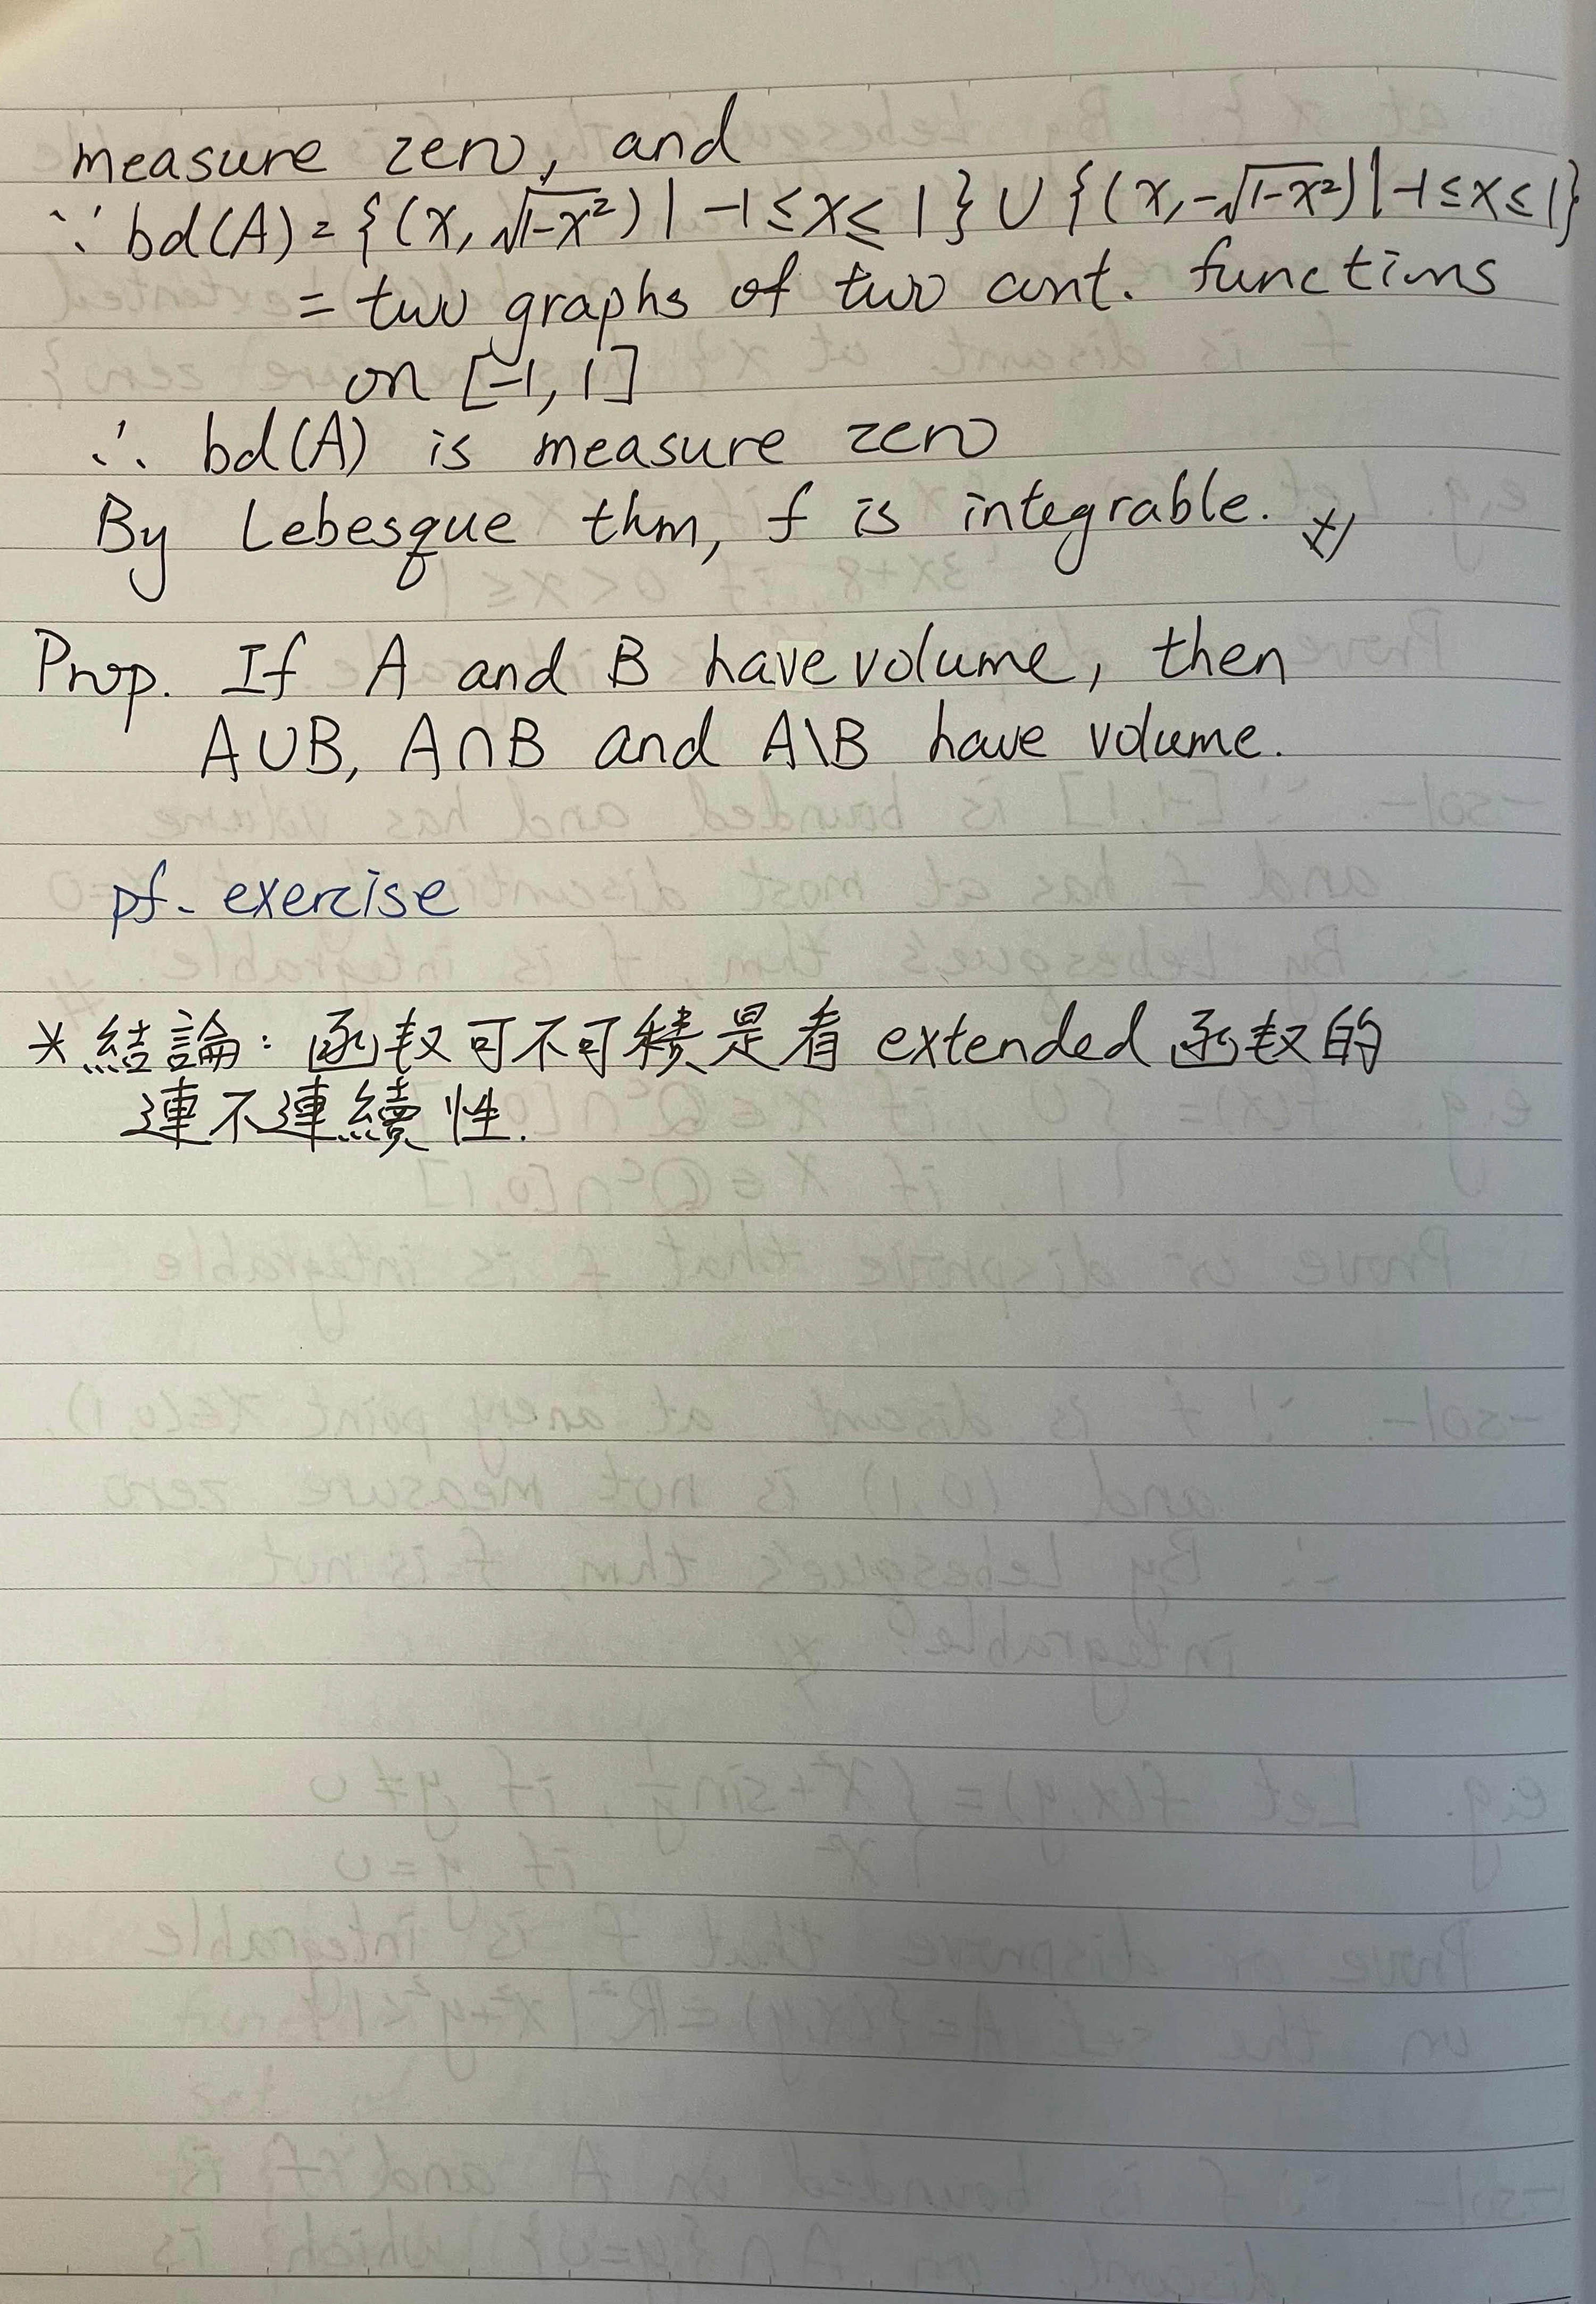 measure zero, and
∵ bd(A) = {(x, √1-x²) | -1 ≤ x ≤ 1} ∪ {(x, -√1-x²) | -1 ≤ x ≤ 1}
= two graphs of two cont. functions
on [-1, 1]
∴ bd(A) is measure zero
By Lebesque thm, f is integrable.
Prop. If A and B have volume, then
A∪B, A∩B and A\B have volume.
pf- exercise
* 結論: 函数可不可積是看 extended 函数的
連不連續性.